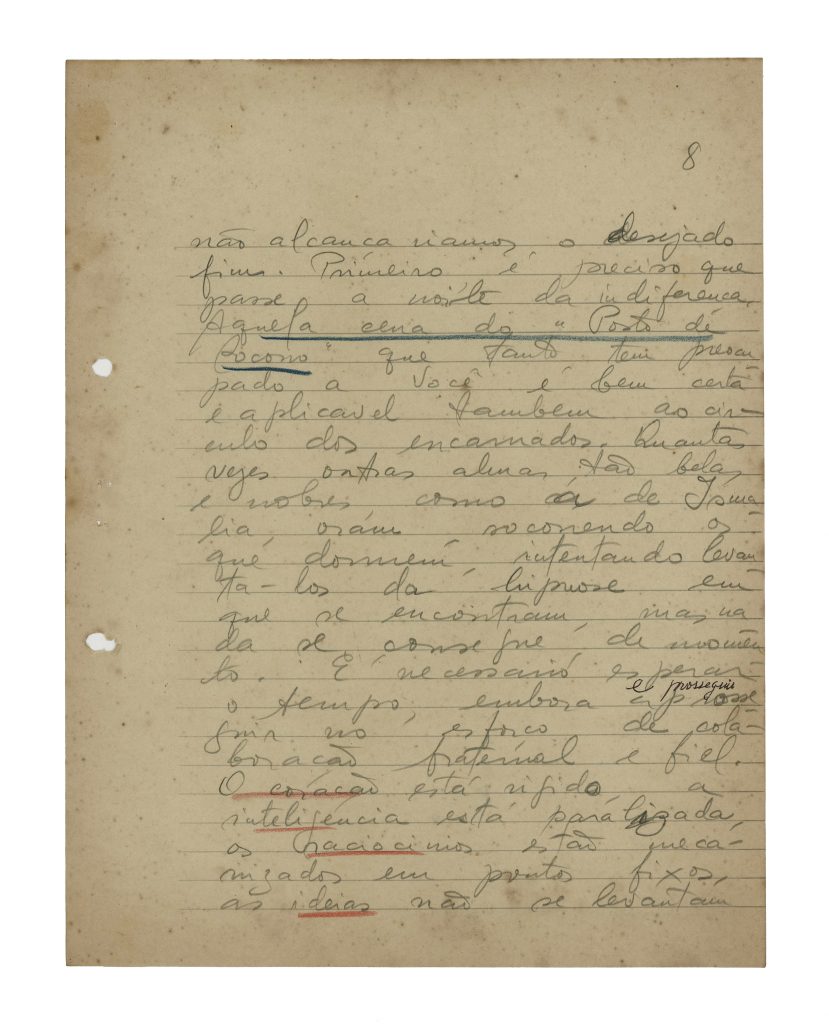 8
não alcançariamos o desejado
fim. Primeiro é preciso que
passe a noite da indiferença.
Aquela cena do "Posto de
Socorro" que tanto tem preocu-
pado a Você é bem certa
e aplicavel tambem ao cir-
culo dos encarnados. Quantas
vezes outras almas tão belas
e nobres como a de Isma-
lia, oram, socorrendo os
que dormem, intentando levan-
ta-los da hipnose em
que se encontram, mas na-
da se consegue, de momen-
to. É necessario esperar
e prosseguir
o tempo, embora a prosse-
guir no esforço de cola-
boração fraternal e fiel.
O coração está rigido, a
inteligência está paralizada,
os raciocinios estão meca-
nizados em pontos fixos,
as ideias não se levantam